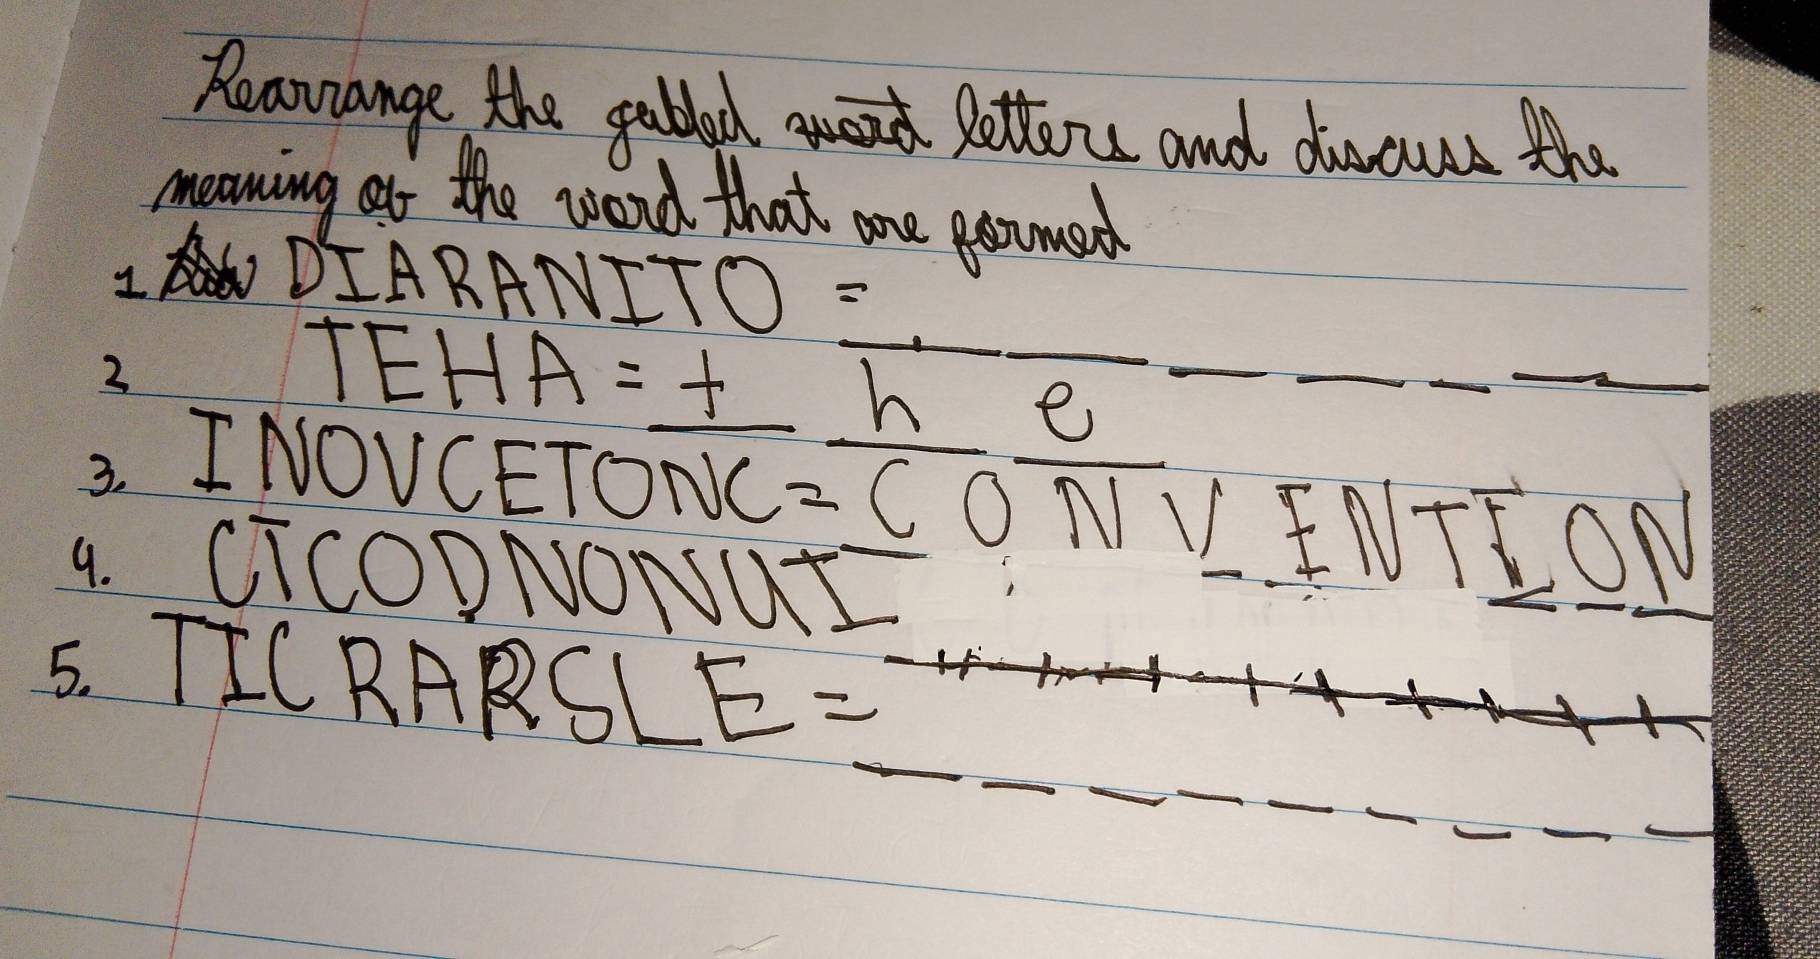 Rearrange the gabled word letters and discuss the
meaning of the word that are formed
1 DIARANITO =
2 TEHA = t h e
3. INOVCETONC = CONVENTION
4. CTCODNONUI
5. TICRARSLE =